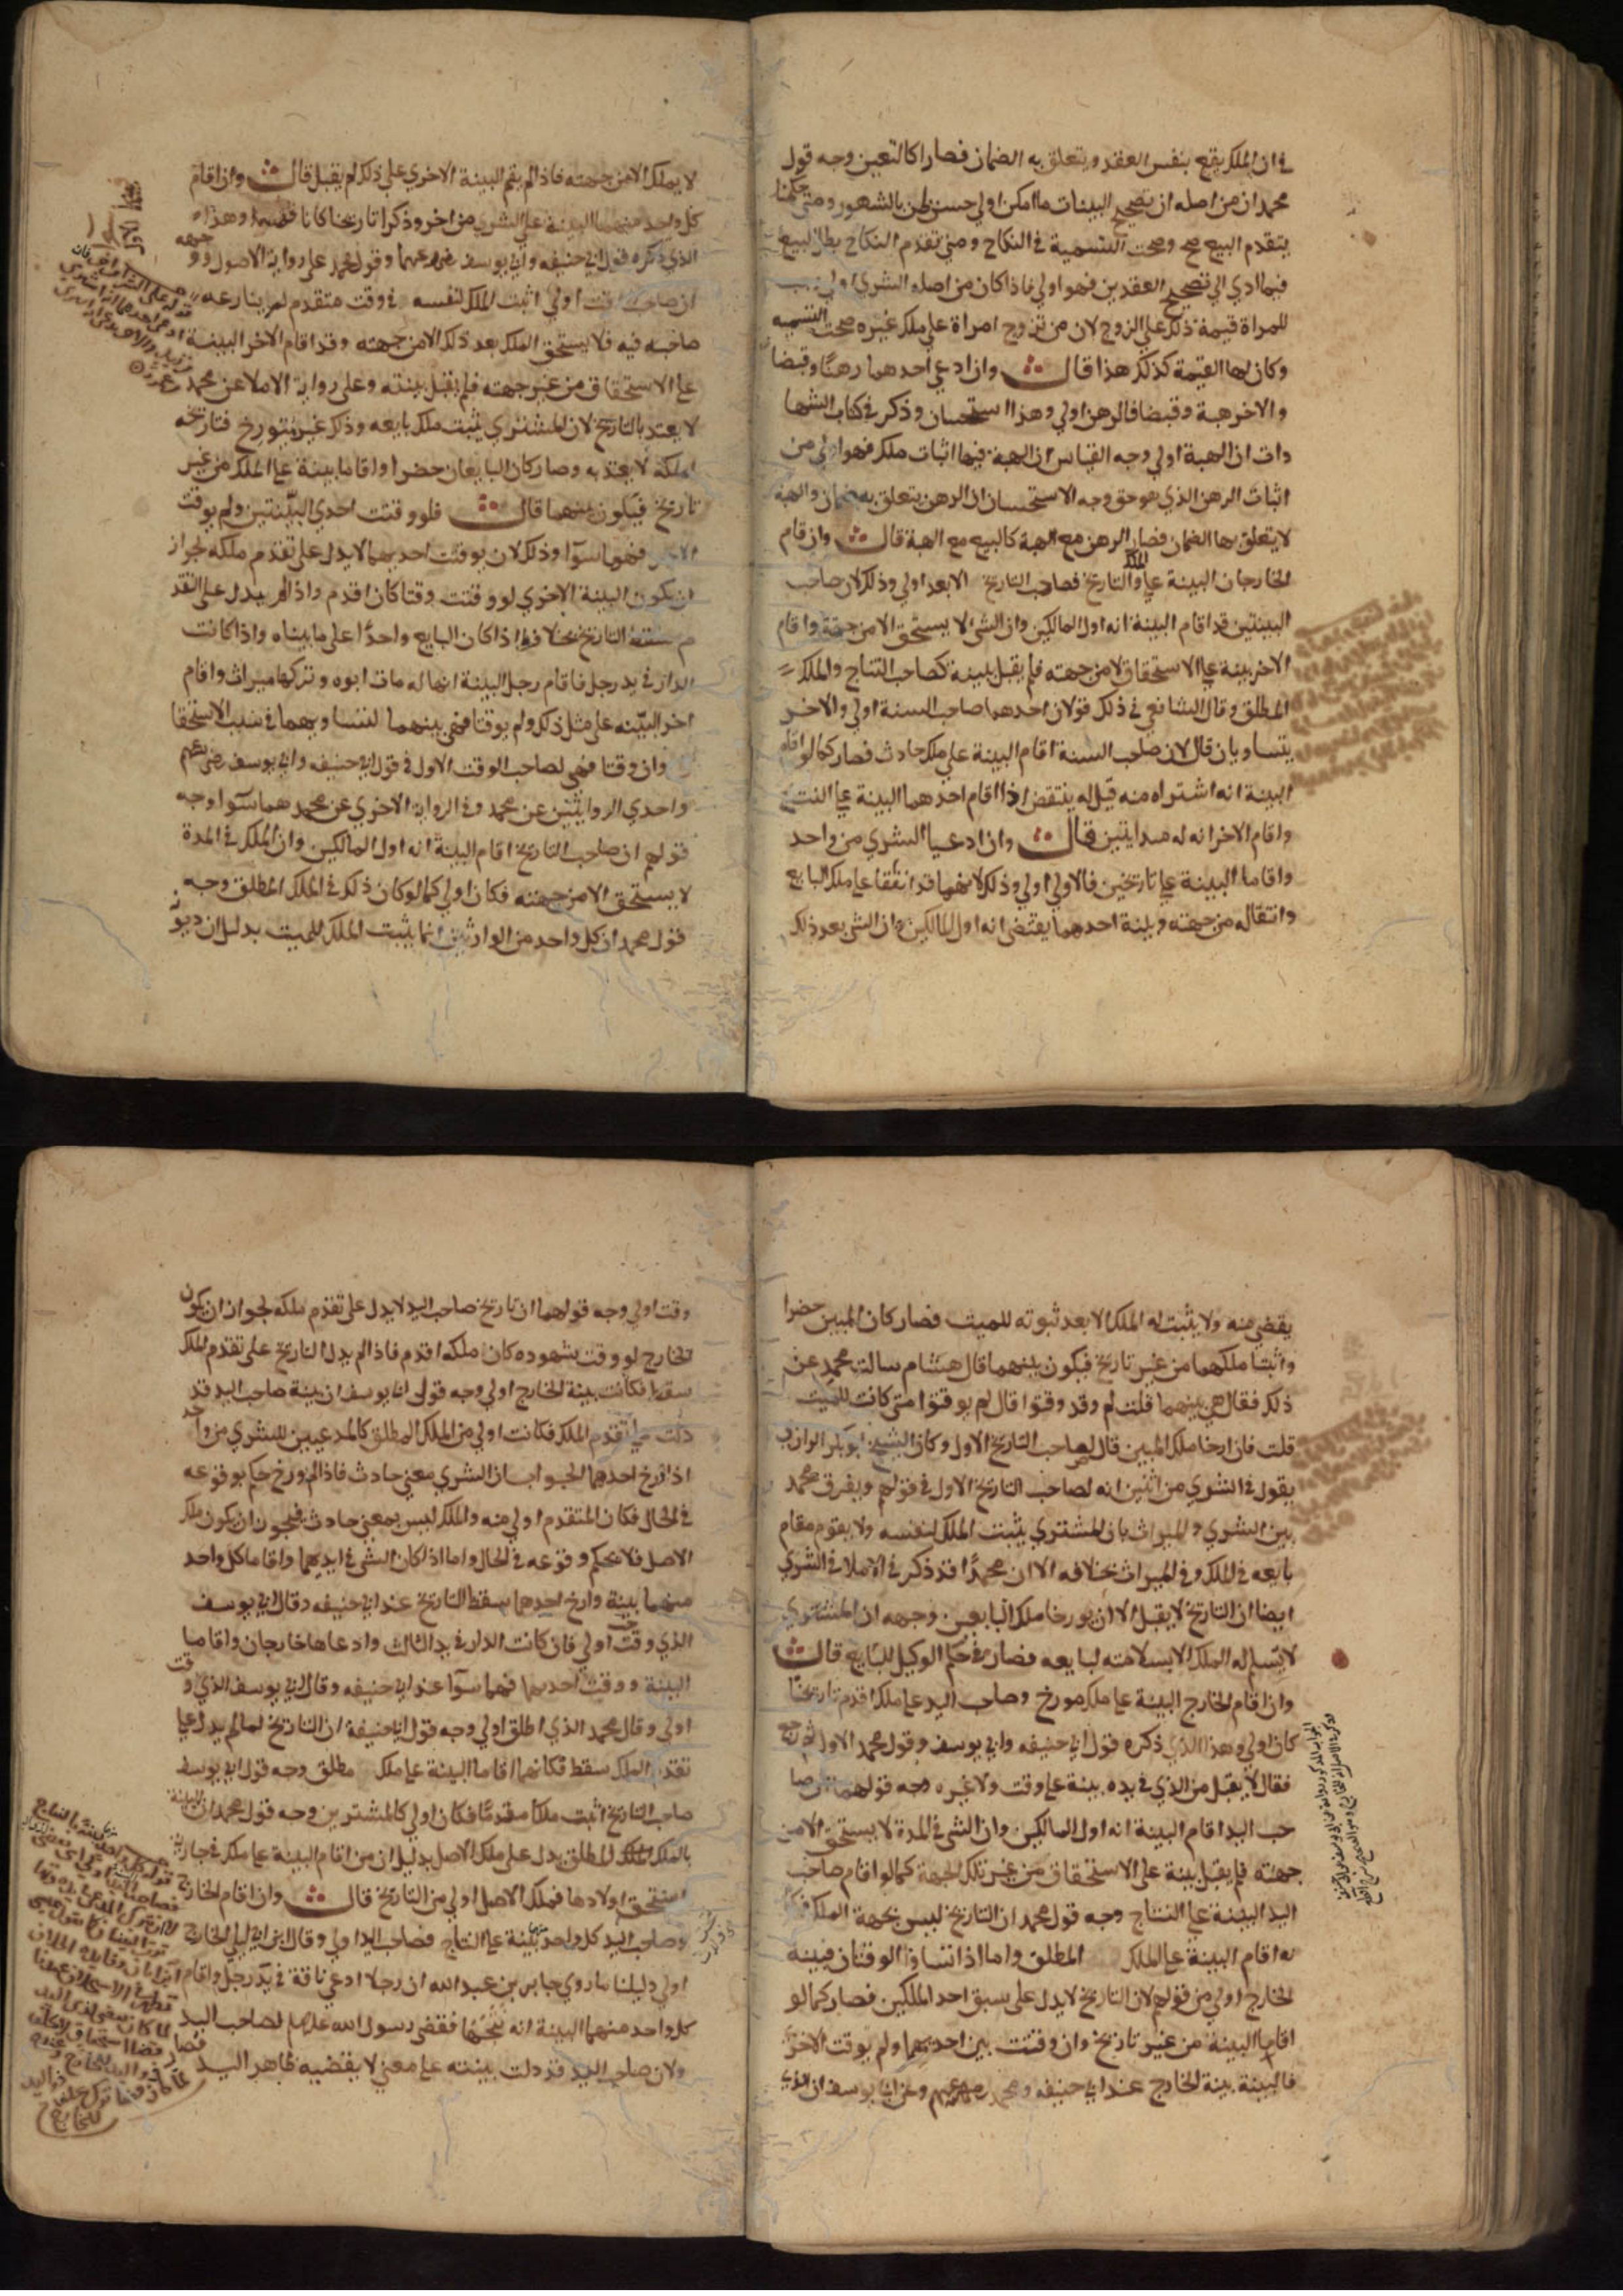 في ان الملك يقع بنفس العقد ويتعلق به الضمان فصارا كالتعين وجه قول
محمد ان من اصله ان تصحيح البينات ما امكن اولي حسن ظن بالشهور ومتي حكمنا
بتقدم البيع صح وصحت التسمية في النكاح ومتي تقدم النكاح بطل البيع
فيما ادي الي تصحيح العقدين فهو اولي فاذا كان من اصله الشري اولي
للمراة قيمة ذلك علي الزوج لان من تزوج امراة علي ملك غيره صحت التسميه
وكان لها القيمة كذلك هذا قال وان ادعي احدهما رهنا وقبضا
والاخر هبة وقبضا فالرهن اولي وهذا استحسان وذكر في كتاب الشها
دات ان الهبة اولي وجه القياس ان الهبة فيها اثبات ملك فهو اولي من
اثبات الرهن الذي هو حق وجه الاستحسان ان الرهن يتعلق به ضمان والهبة
لا يتعلق بها الضمان فصار الرهن مع الهبة كالبيع مع الهبة قال وان قام
الخارجان البينة علي الملك والتاريخ فصاحب التاريخ الابعد اولي وذلك لان صاحب
البينتين قد اقام البينة انه اول المالكين وان الشي لا يستحق الا من جهته واقام
الاخر بينة علي الاستحقاق لا من جهته فلم يقبل بينة كصاحب النتاج والملك
المطلق وقال الشافعي في ذلك قولان احدهما صاحب السنة اولي والاخر
يتساويان قال لان صاحب السنة اقام البينة علي ملك حادث فصار كما لو اقام
البينة انه اشتراه منه قيل له ينتقض اذا اقام احدهما البينة علي النتج
واقام الاخر انه له مند اثنين قال وان ادعيا الشري من واحد
واقاما البينة علي تاريخين فالاولي اولي وذلك لانهما قد اتفقا علي ملك البايع
وانتقاله من جهته وبينة احدهما يقتضي انه اول المالكين وان الشي بعد ذلك
لا يملك الا من جهته فاذا لم يقم البينة الاخري علي ذلك لم يقبل قال وان اقام
كل واحد منهما البينة علي الشري من اخر وذكرا تاريخا كانا وهذا
الذي ذكره قول ابي حنيفه وابي يوسف رضي الله عنهما وقول محمد علي رواية الاصول ووجهه
ان صاحب الوقت اولي اثبت الملك لنفسه في وقت متقدم لم ينازعه
صاحبه فيه فلا يستحق الملك بعد ذلك الا من جهته وقد اقام الاخر البينة
علي الاستحقاق من غير جهته فلم يقبل بينته وعلي رواية الاملا عن محمد
لا يعتد بالتاريخ لان المشتري يثبت ملك بايعه وذلك غير متورخ فتاريخه
لملكه لا يعتد به وصار كان البايعان حضرا واقاما بينة علي الملك من غير
تاريخ فيكون بينهما قال فلو وقتت احدي البينتين ولم يوقت
الاخري فهما سوآ وذلك لان توقت احديهما لا يدل علي تقدم ملكه لجواز
ان يكون البينة الاخري لو وقتت وقتا كان اقدم واذا لم يدل علي التقد
م سقط التاريخ بخلاف ما اذا كان البايع واحدا علي ما بيناه واذا كانت
الدار في يد رجل فاقام رجل البينة انها له مات ابوه وتركها ميراث واقام
اخر البينه علي مثل ذلك ولم يوقتا فهي بينهما لتساويهما في سبب الاستحقا
ق وان وقتا فهي لصاحب الوقت الاول في قول ابي حنيفه وابي يوسف رضي الله عنهم
واحدي الروايتين عن محمد وفي الرواية الاخري عن محمد هما سوآ وجه
قولهم ان صاحب التاريخ اقام البينة انه اول المالكين وان الملك في المدة
لا يستحق الا من جهته فكان اولي كما لو كان ذلك في الملك المطلق وجه
قول محمد ان كل واحد من الوارثين انما يثبت الملك للميت بدليل ان ديونه
يقضي منه ولا يثبت له الملك الا بعد ثبوته للميت فصار كان الميتين حضرا
واثبتا ملكهما من غير تاريخ فيكون بينهما قال هشام سالت محمد عن
ذلك فقال هي بينهما قلت لم وقد وقتوا قال لم يوقتوا متي كانت للميت
قلت فان ارخا ملك الميتين قال لصاحب التاريخ الاول وكان الشيخ ابو بكر الرازي
يقول في الشري من اثنين انه لصاحب التاريخ الاول في قولهم ويفرق محمد
بين الشري والميراث بان المشتري يثبت الملك لنفسه ولا يقوم مقام
بايعه في الملك وفي الميراث بخلافه الا ان محمدا قد ذكر في الاملا في الشري
ايضا ان التاريخ لا يقبل الا ان يورخا ملك البايعين وجهه ان المشتري
لا يسلم له الملك الا بسلامته لبايعه فصار في حكم الوكيل للبايع قال
وان اقام الخارج البينة علي ملك مورخ وصاحب اليد علي ملك اقدم تاريخا
كان اولي وهذا الذي ذكره قول ابي حنيفه وابي يوسف وقول محمد الاول ثم رجع
فقال لا يقبل من الذي في يده بينة علي وقت ولا غيره وجه قولهما ان صا
حب اليد اقام البينة انه اول المالكين وان الشي في المدة لا يستحق الا من
جهته فلم يقبل بينة علي الاستحقاق من غير تلك الجهة كما لو اقام صاحب
اليد البينة علي النتاج وجه قول محمد ان التاريخ ليس بجهة الملك فكا
نه اقام البينة علي الملك المطلق واما اذا تساوا الوقتان فبينة
الخارج اولي من قولهم لان التاريخ لا يدل علي سبق احد الملكين فصار كما لو
اقاما البينة من غير تاريخ وان وقتت بين احديهما ولم يوقت الاخري
فالبينة بينة الخارج عند ابي حنيفه ومحمد رضي الله عنهم وعن ابي يوسف ان الذي
وقت اولي وجه قولهما ان تاريخ صاحب اليد لا يدل علي تقدم ملكه لجواز ان يكون
الخارج لو وقت شهوده كان ملكه اقدم فاذا لم يدل التاريخ علي تقدم الملك
سقط فكانت بينة الخارج اولي وجه قول ابي يوسف ان بينة صاحب اليد قد
دلت علي تقدم الملك فكانت اولي من الملك المطلق كالمدعيين للشري من واحد
اذا ارخ احدهما الجواب ان الشري معني حادث فاذا لم يورخ حكم بوقوعه
في الحال فكان المتقدم اولي منه والملك ليس بمعني حادث فيجوز ان يكون ملك
الاصل فلا نحكم وقوعه في الحال واما اذا كان الشي في ايديهما واقاما كل واحد
منهما بينة وارخ احدهما سقط التاريخ عند ابي حنيفه وقال ابي يوسف
الذي وقت اولي فان كانت الدار في يد الثالث وادعاها خارجان واقاما
البينة ووقت احديهما فهما سوآ عند ابي حنيفه وقال ابي يوسف الذي وقت
اولي وقال محمد الذي اطلق اولي وجه قول ابي حنيفة ان التاريخ لما لم يدل علي
تقدم الملك سقط فكانهما اقاما البينة علي ملك مطلق وجه قول ابي يوسف
صاحب التاريخ اثبت ملكا متقدما فكان اولي كالمشترين وجه قول محمد ان البينة
بالملك المطلق يدل علي ملك الاصل بدليل ان من اقام البينة علي ملك في جارية
استحق اولادها فملك الاصل اولي من التاريخ قال وان اقام الخارج
وصاحب اليد كل واحد منهما بينة علي النتاج فصاحب اليد اولي وقال ابن ابي ليلي الخارج
اولي دليلنا ما روي جابر بن عبد الله ان رجلا ادعي ناقة في يد رجل واقام
كل واحد منهما البينة انه نتجها فقضي رسول الله عليه السلم لصاحب اليد
ولان صاحب اليد قد دلت بينته علي معني لا يقتضيه ظاهر اليد